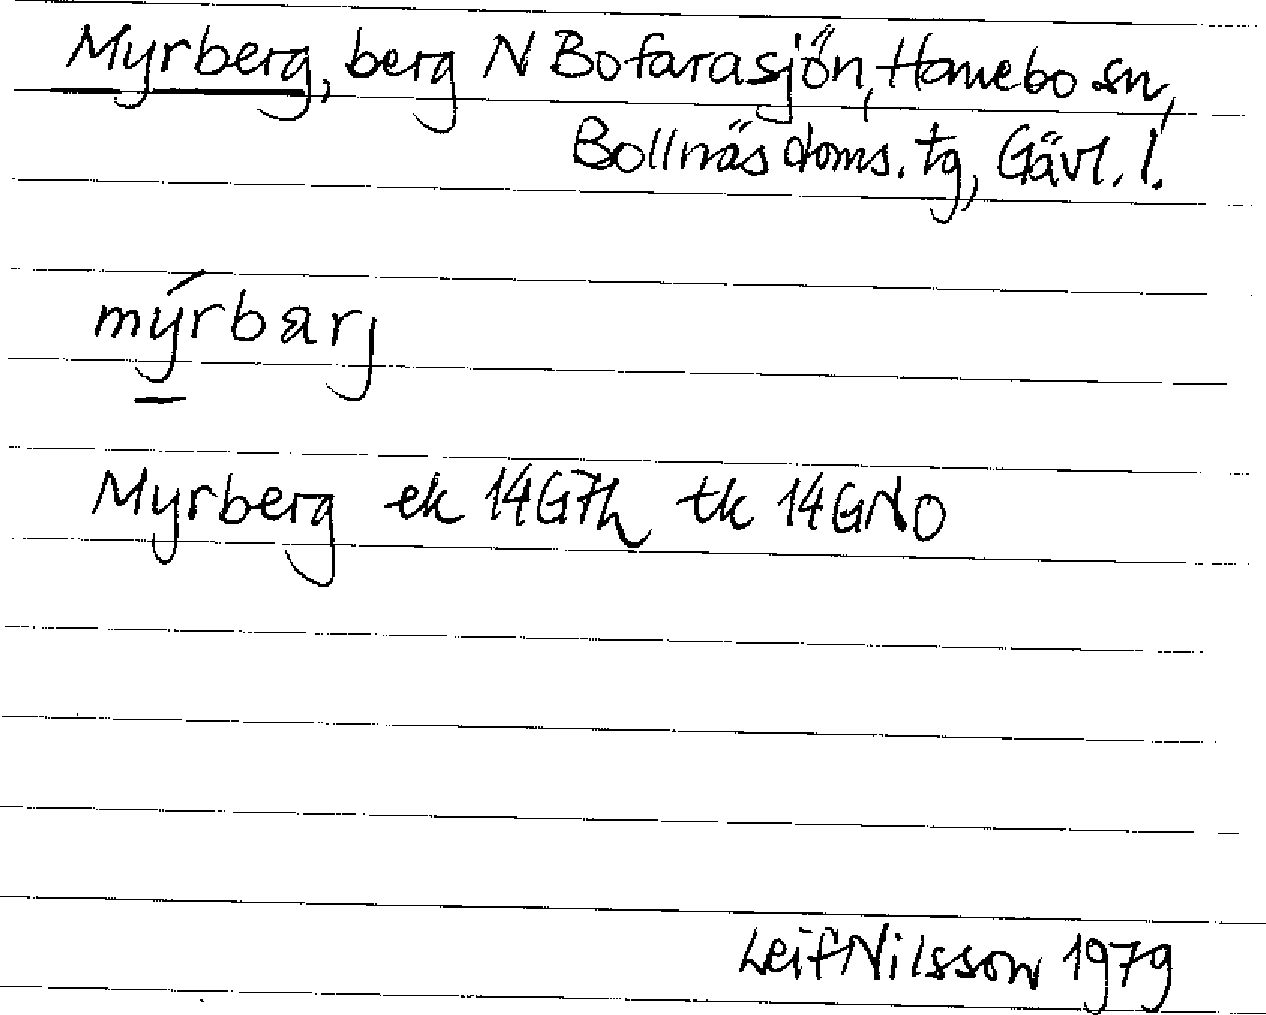 Myrberg, berg N Bofarasjön, Hanebo sn,
Bollnäs doms. tg, Gävl. l.
mýrbarj
Myrberg ek 14G7h tk 14GNO
Leif Nilsson 1979